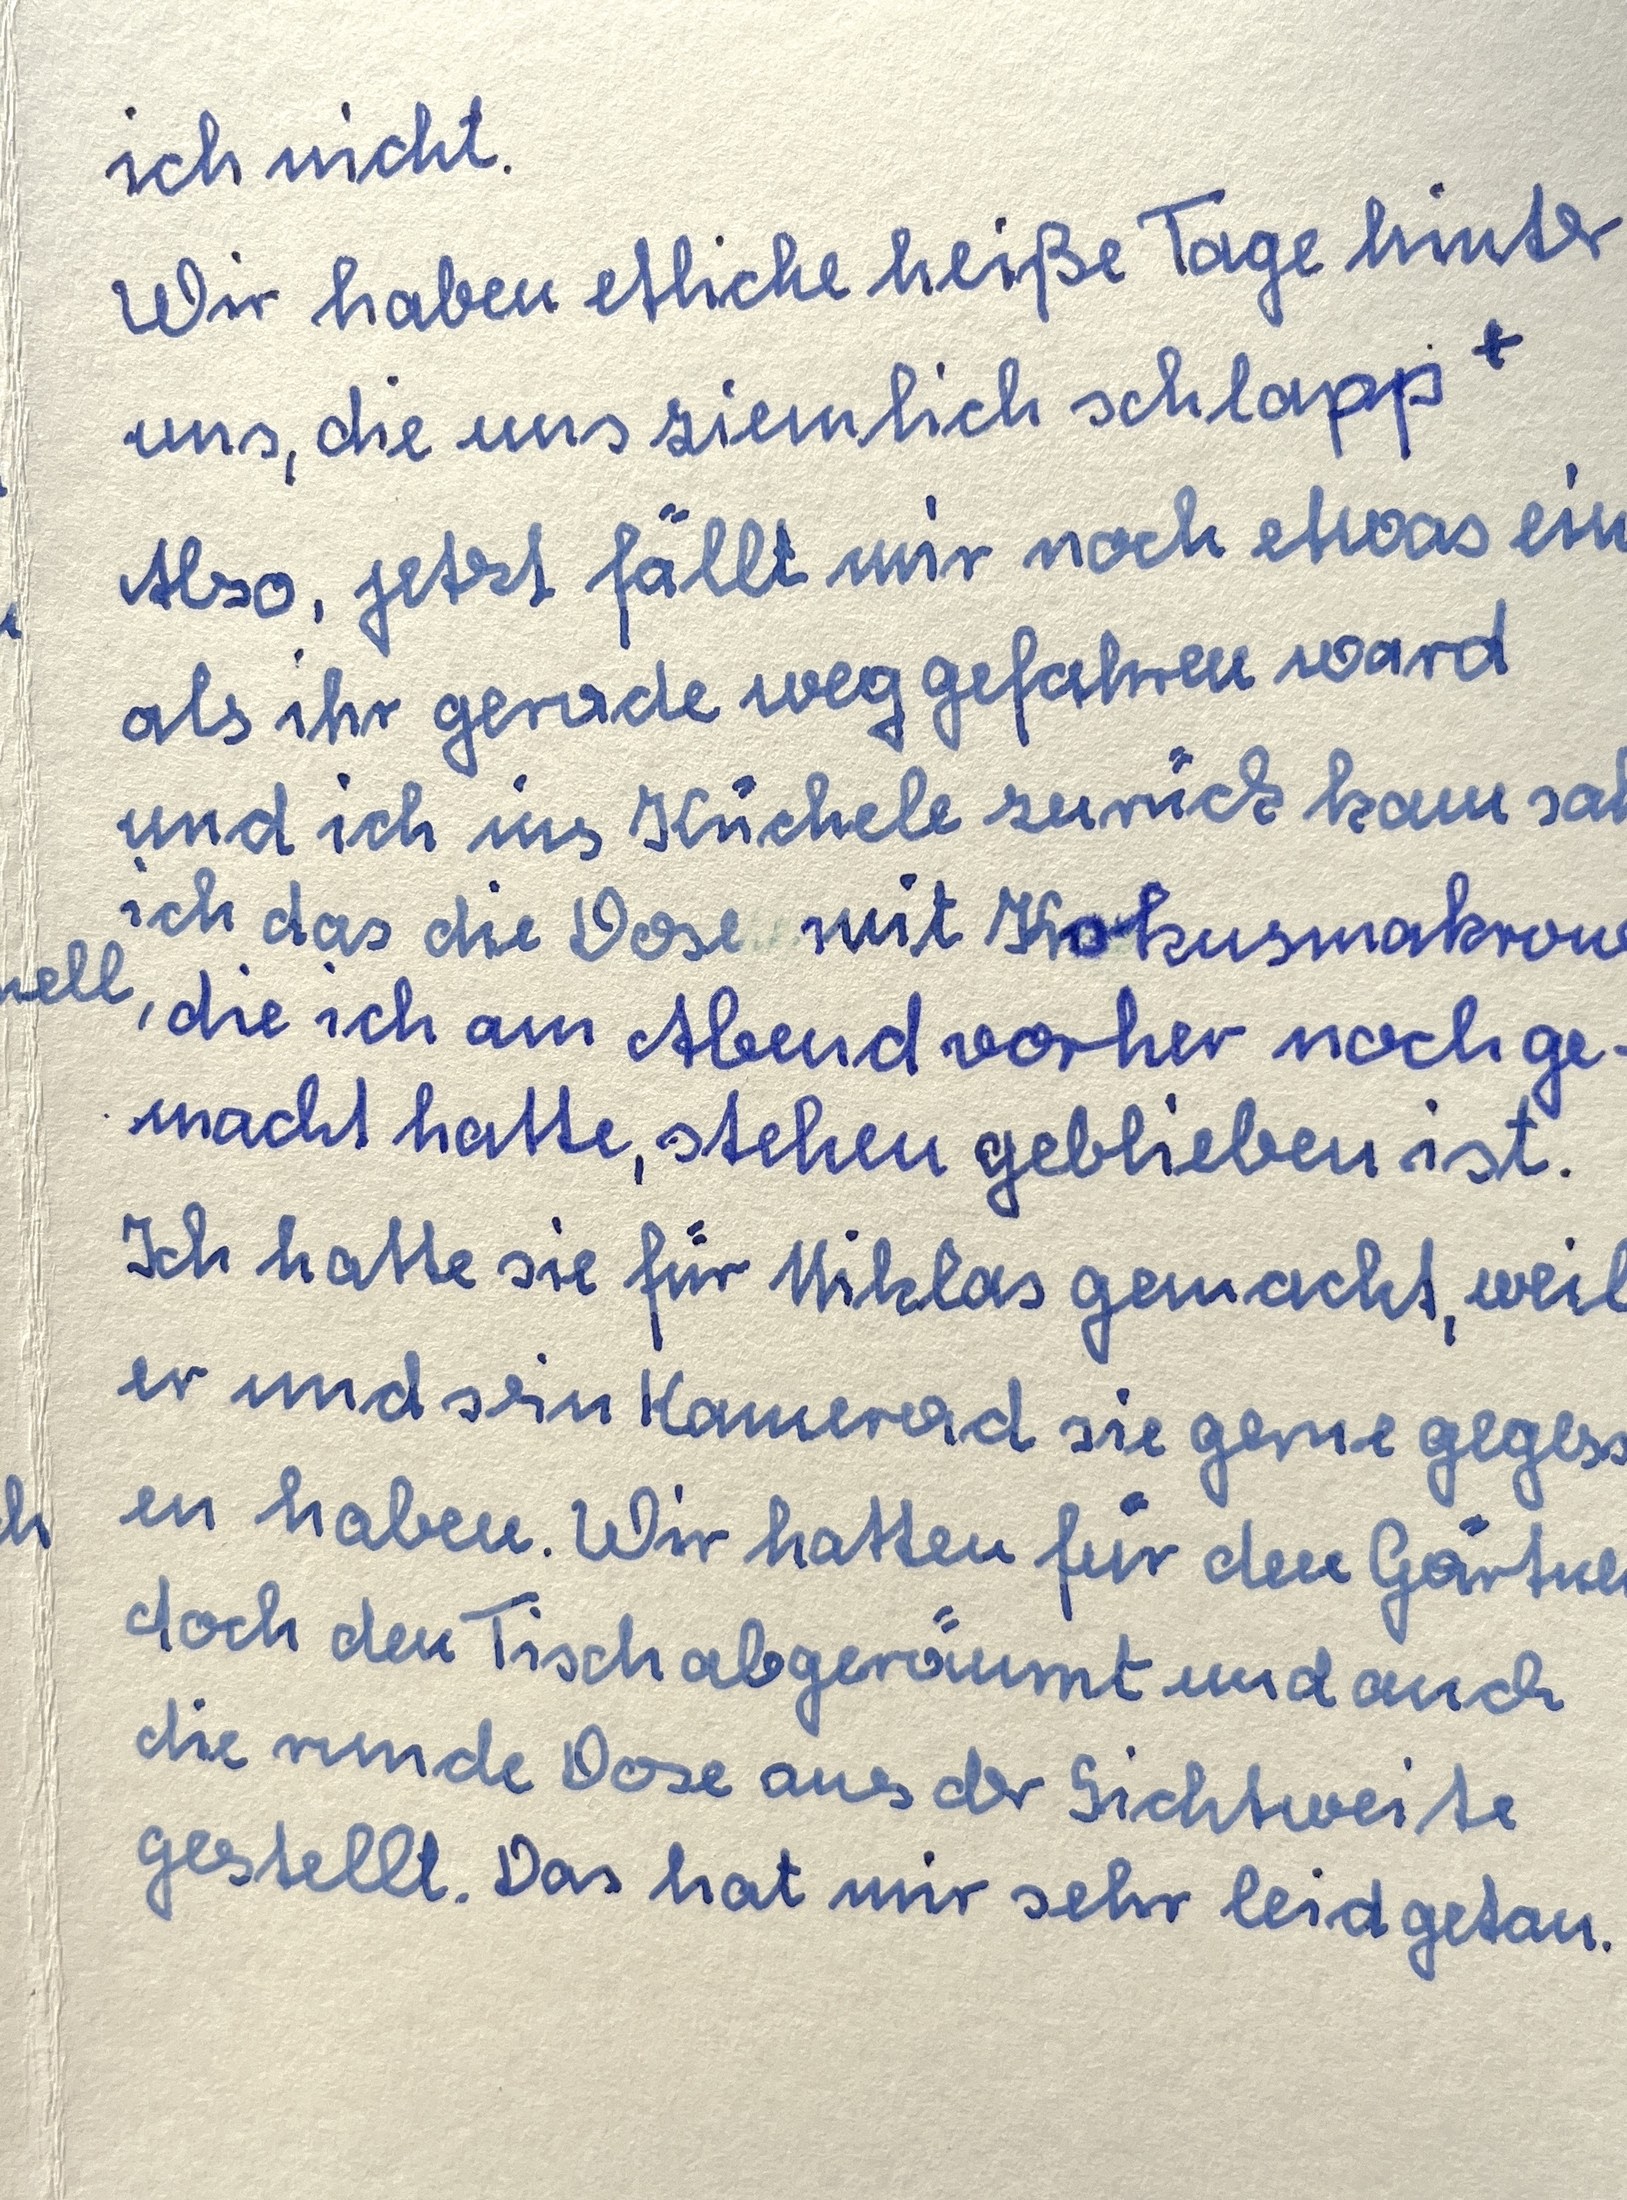 ich nicht.
Wir haben etliche heiße Tage hinter
uns, die uns ziemlich schlapp +
Also, jetzt fällt mir noch etwas ein
als ihr gerade weg gefahren ward
und ich ins Küchele zurück kam sah
ich das die Dose mit Kokusmakrone
, die ich am Abend vorher noch ge-
macht hatte, stehen geblieben ist.
Ich hatte sie für Niklas gemacht, weil
er und sein Kamerad sie gerne gegess
en haben. Wir hatten für den Gärtner
doch den Tisch abgeräumt und auch
die runde Dose aus der Sichtweite
gestellt. Das hat mir sehr leid getan.